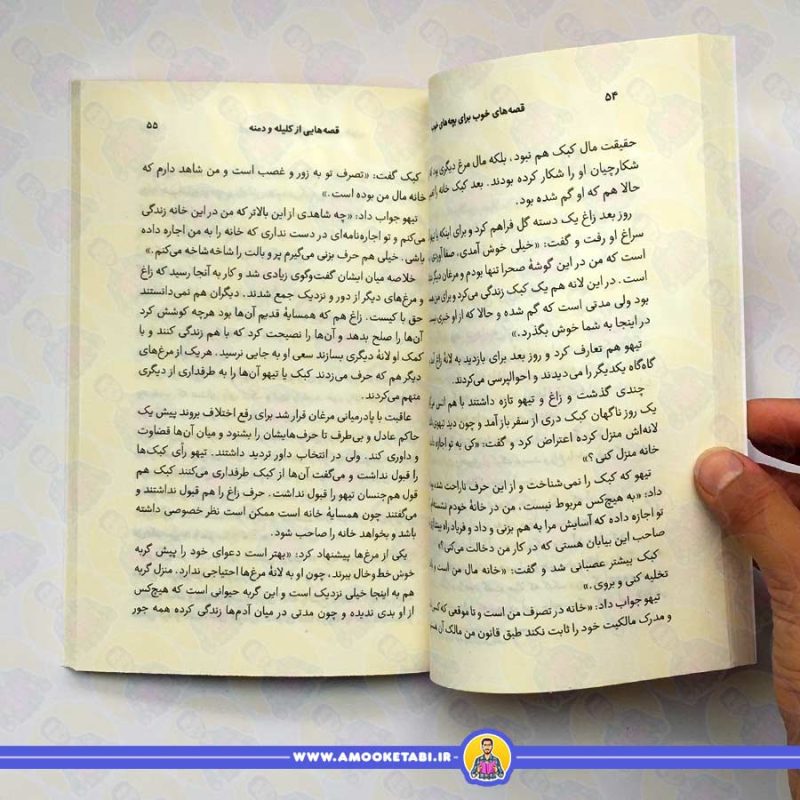 ۵۴
قصه‌های خوب برای بچه‌های خوب
حقیقت مال کبک هم نبود، بلکه مال مرغ دیگری بود که
شکارچیان او را شکار کرده بودند. بعد کبک خانه را
حالا هم که او گم شده بود.
روز بعد زاغ یک دسته گل فراهم کرد و برای اینکه با تیهو
سراغ او رفت و گفت: «خیلی خوش آمدی، صفا آوردی،
است که من در این گوشهٔ صحرا تنها بودم و مرغان دیگر
است. در این لانه هم یک کبک زندگی می‌کرد و برای من
بود ولی مدتی است که گم شده و حالا که از او خبری نیست
در اینجا به شما خوش بگذرد.»
تیهو هم تعارف کرد و روز بعد برای بازدید به لانهٔ زاغ
گاه‌گاه یکدیگر را می‌دیدند و احوالپرسی می‌کردند.
چندی گذشت و زاغ و تیهو تازه داشتند با هم انس
یک روز ناگهان کبک دری از سفر باز آمد و چون دید تیهو
لانه‌اش منزل کرده اعتراض کرد و گفت: «کی به تو اجازه
خانه منزل کنی؟»
تیهو که کبک را نمی‌شناخت و از این حرف ناراحت شده
داد: «به هیچ‌کس مربوط نیست، من در خانهٔ خودم
تو اجازه داده که آسایش مرا به هم بزنی و داد و فریاد راه
صاحب این بیابان هستی که در کار من دخالت می‌کنی؟»
کبک بیشتر عصبانی شد و گفت: «خانه مال من است و
تخلیه کنی و بروی.»
تیهو جواب داد: «خانه در تصرف من است و تا موقعی که کسی
و مدرک مالکیت خود را ثابت نکند طبق قانون من مالک آن
قصه‌هایی از کلیله و دمنه
۵۵
کبک گفت: «تصرف تو به زور و غصب است و من شاهد دارم که
خانه مال من بوده است.»
تیهو جواب داد: «چه شاهدی از این بالاتر که من در این خانه زندگی
می‌کنم و تو اجاره‌نامه‌ای در دست نداری که خانه را به من اجاره داده
باشی. خیلی هم حرف بزنی می‌گیرم پر و بالت را شاخه‌شاخه می‌کنم.»
خلاصه میان ایشان گفت‌وگوی زیادی شد و کار به آنجا رسید که زاغ
و مرغ‌های دیگر از دور و نزدیک جمع شدند. دیگران هم نمی‌دانستند
حق با کیست. زاغ هم که همسایهٔ قدیم آن‌ها بود هرچه کوشش کرد
آن‌ها را صلح بدهد و آن‌ها را نصیحت کرد که با هم زندگی کنند و یا
کمک او لانهٔ دیگری بسازند سعی او به جایی نرسید. هر یک از مرغ‌های
دیگر هم که حرف می‌زدند کبک یا تیهو آن‌ها را به طرفداری از دیگری
متهم می‌کردند.
عاقبت با پادرمیانی مرغان قرار شد برای رفع اختلاف بروند پیش یک
حاکم عادل و بی‌طرف تا حرف‌هایشان را بشنود و میان آن‌ها قضاوت
و داوری کند. ولی در انتخاب داور تردید داشتند. تیهو رأی کبک‌ها
را قبول نداشت و می‌گفت آن‌ها از کبک طرفداری می‌کنند کبک هم
قول هم‌جنسان تیهو را قبول نداشت. حرف زاغ را هم قبول نداشتند و
می‌گفتند چون همسایهٔ خانه است ممکن است نظر خصوصی داشته
باشد و بخواهد خانه را صاحب شود.
یکی از مرغ‌ها پیشنهاد کرد: «بهتر است دعوای خود را پیش گربه
خوش‌خط‌وخال ببرند، چون او به لانهٔ مرغ‌ها احتیاجی ندارد. منزل گربه
هم به اینجا خیلی نزدیک است و این گربه حیوانی است که هیچ‌کس
از او بدی ندیده و چون مدتی در میان آدم‌ها زندگی کرده همه جور
WWW.AMOOKETABI.IR